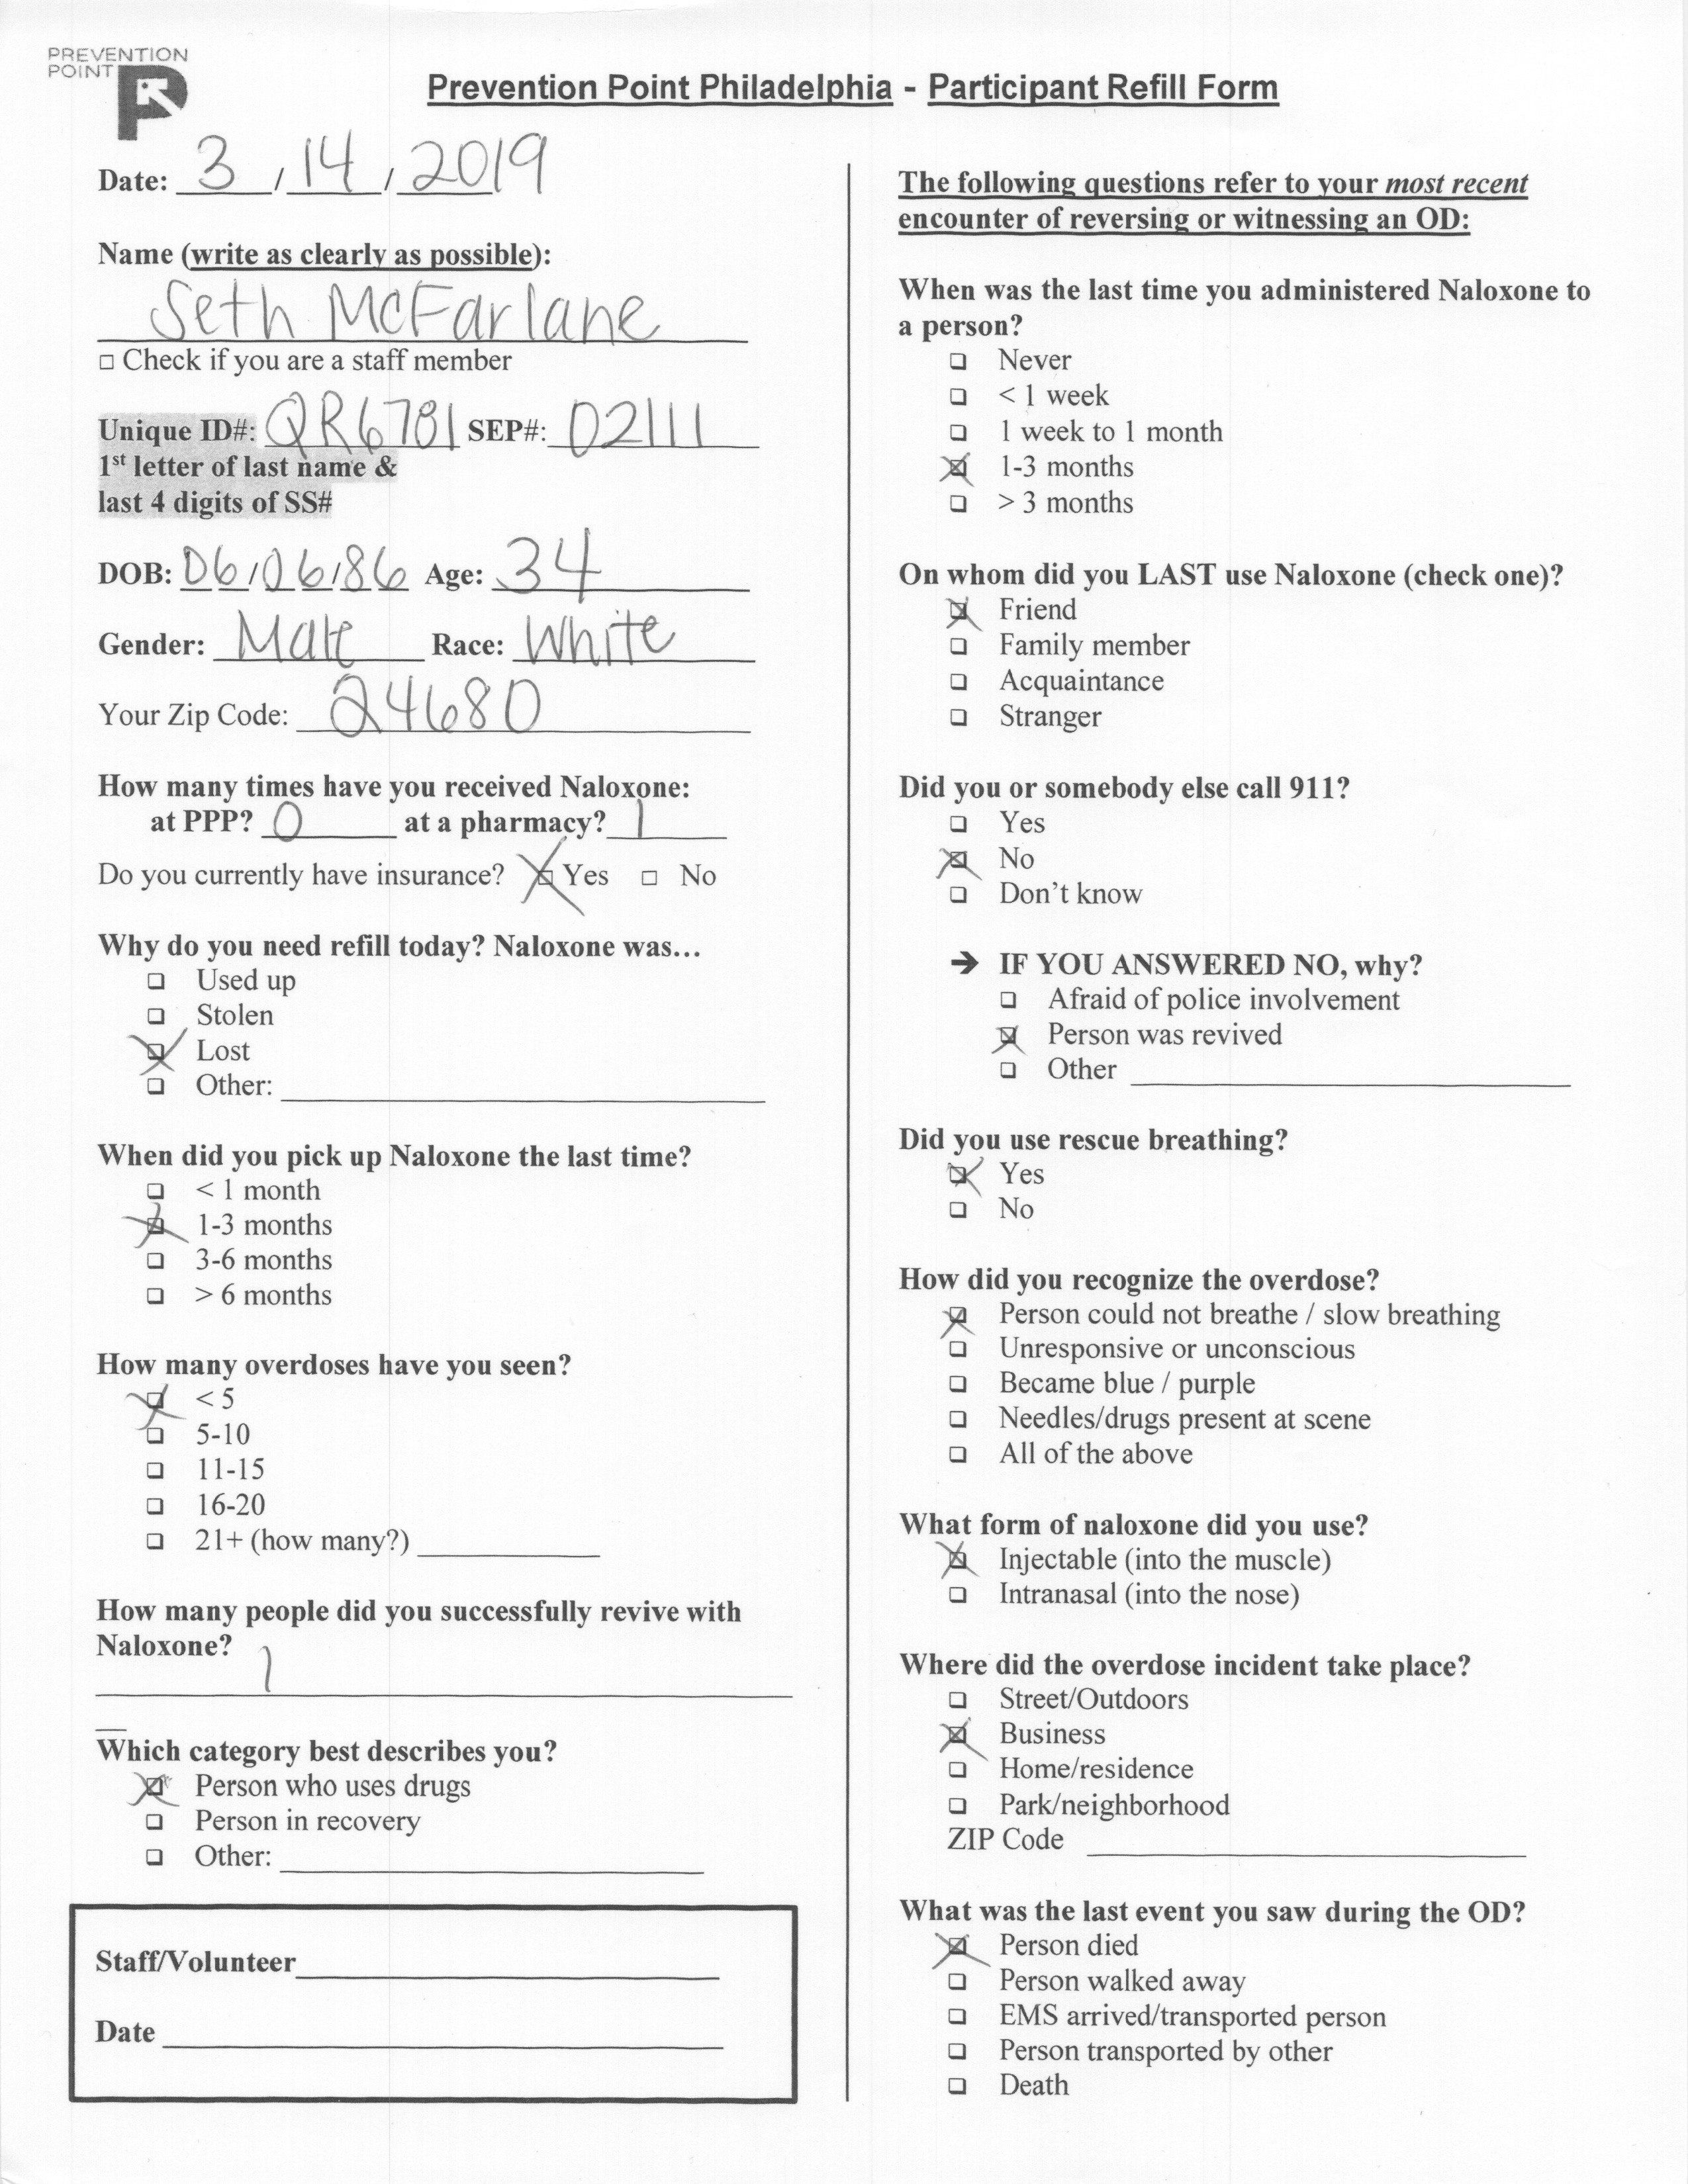 PREVENTION
POINT
Prevention Point Philadelphia - Participant Refill Form
Date: 3 / 14 / 2019
Name (write as clearly as possible):
Seth McFarlane
☐ Check if you are a staff member
Unique ID#: QR6781 SEP#: 02111
1st letter of last name &
last 4 digits of SS#
DOB: 06/06/86 Age: 34
Gender: Male Race: White
Your Zip Code: 24680
How many times have you received Naloxone:
at PPP? 0 at a pharmacy? 1
Do you currently have insurance? ☒ Yes ☐ No
Why do you need refill today? Naloxone was...
☐ Used up
☐ Stolen
☒ Lost
☐ Other:
When did you pick up Naloxone the last time?
☐ < 1 month
☒ 1-3 months
☐ 3-6 months
☐ > 6 months
How many overdoses have you seen?
☒ < 5
☐ 5-10
☐ 11-15
☐ 16-20
☐ 21+ (how many?)
How many people did you successfully revive with
Naloxone? 1
Which category best describes you?
☒ Person who uses drugs
☐ Person in recovery
☐ Other:
Staff/Volunteer
Date
The following questions refer to your most recent
encounter of reversing or witnessing an OD:
When was the last time you administered Naloxone to
a person?
☐ Never
☐ < 1 week
☐ 1 week to 1 month
☒ 1-3 months
☐ > 3 months
On whom did you LAST use Naloxone (check one)?
☒ Friend
☐ Family member
☐ Acquaintance
☐ Stranger
Did you or somebody else call 911?
☐ Yes
☒ No
☐ Don't know
➔ IF YOU ANSWERED NO, why?
☐ Afraid of police involvement
☒ Person was revived
☐ Other
Did you use rescue breathing?
☒ Yes
☐ No
How did you recognize the overdose?
☒ Person could not breathe / slow breathing
☐ Unresponsive or unconscious
☐ Became blue / purple
☐ Needles/drugs present at scene
☐ All of the above
What form of naloxone did you use?
☒ Injectable (into the muscle)
☐ Intranasal (into the nose)
Where did the overdose incident take place?
☐ Street/Outdoors
☒ Business
☐ Home/residence
☐ Park/neighborhood
ZIP Code
What was the last event you saw during the OD?
☒ Person died
☐ Person walked away
☐ EMS arrived/transported person
☐ Person transported by other
☐ Death